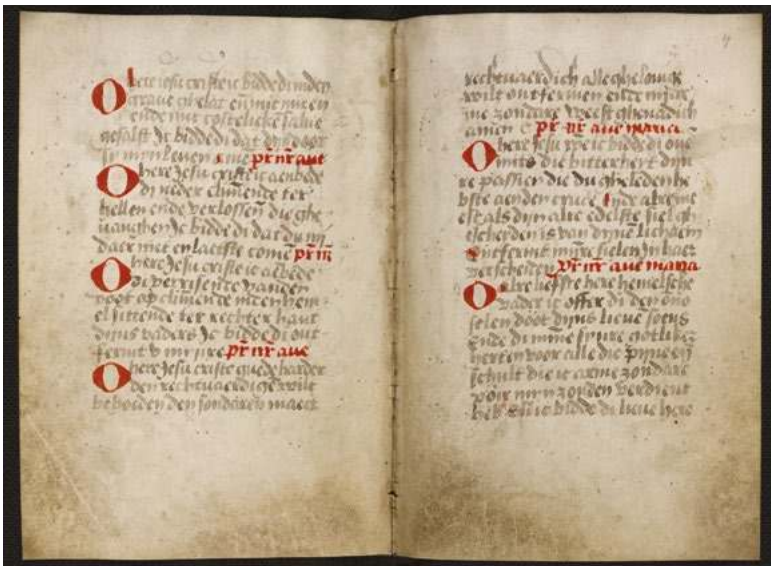 O here iesu criste ic bidde di inden
grave gheleit en mit mirren
ende mit costelicke salve
gesalft Ic bidde di dat dyn doot
sy myn leven pr nr ave
O here Jesu criste ic aenbede
di neder clīmende ter
hellen ende verlossen die ghe
vanghen Ic bidde di dat du mi
daer niet en laetste comē pr nr
O here Jesu criste ic aēbede
di verrisende vanden
doot op climende inten hem
el sittende ter rechter hant
dijns vaders Ic bidde di ont
fermt pr nr ave
O here Jesu criste guede harder
den rechtvaerdigē wilt
behoeden den sonderen maect
rechtvaerdich alle ghelovige
wilt ontfermen ende mijns
me zondare weest ghenadich
amen pr nr ave maria
O here Jesu ic bidde di over
mits die bitterheit dijn
re passien die du gheleden he
bste aenden cruce
alst dijn alre edelste siel gh
escheiden is van dynē lichaem
Ontfermt mijnre sielen In haer
verscheiden pr nr ave maria
O alre liefste here hemelsche
vader ic offer di den ono
selen doot dijns lieve soens
Ende di minne sijnre
herten voor alle die pijne en
schult die ic arme zondare
voir mijn zonden verdient
heb ic bidde di lieve here